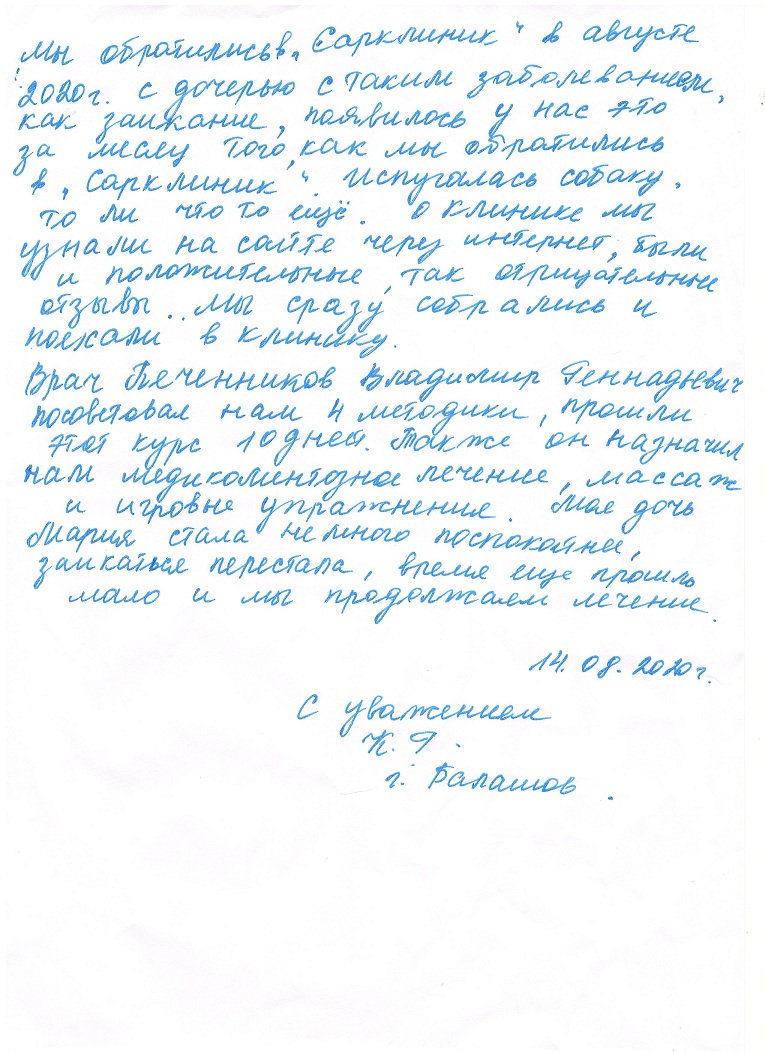 Мы обратились в „Сарклиник" в августе
2020г. с дочерью с таким заболеванием,
как заикание, появилось у нас это
за месяц того, как мы обратились
в „Сарклиник". Испугалась собаку,
то ли что то ещё. О клинике мы
узнали на сайте через интернет, были
и положительные, так отрицательные
отзывы.. Мы сразу собрались и
поехали в клинику.
Врач Печенников Владимир Геннадьевич
посоветовал нам 4 методики, прошли
этот курс 10 дней. Также он назначил
нам медикоментозное лечение, массаж
и игровые упражнения. Моя дочь
Мария стала немного поспокойнее,
заикаться перестала, время еще прошло
мало и мы продолжаем лечение.
14.08.2020г.
С уважением
К. Г.
г. Балашов.